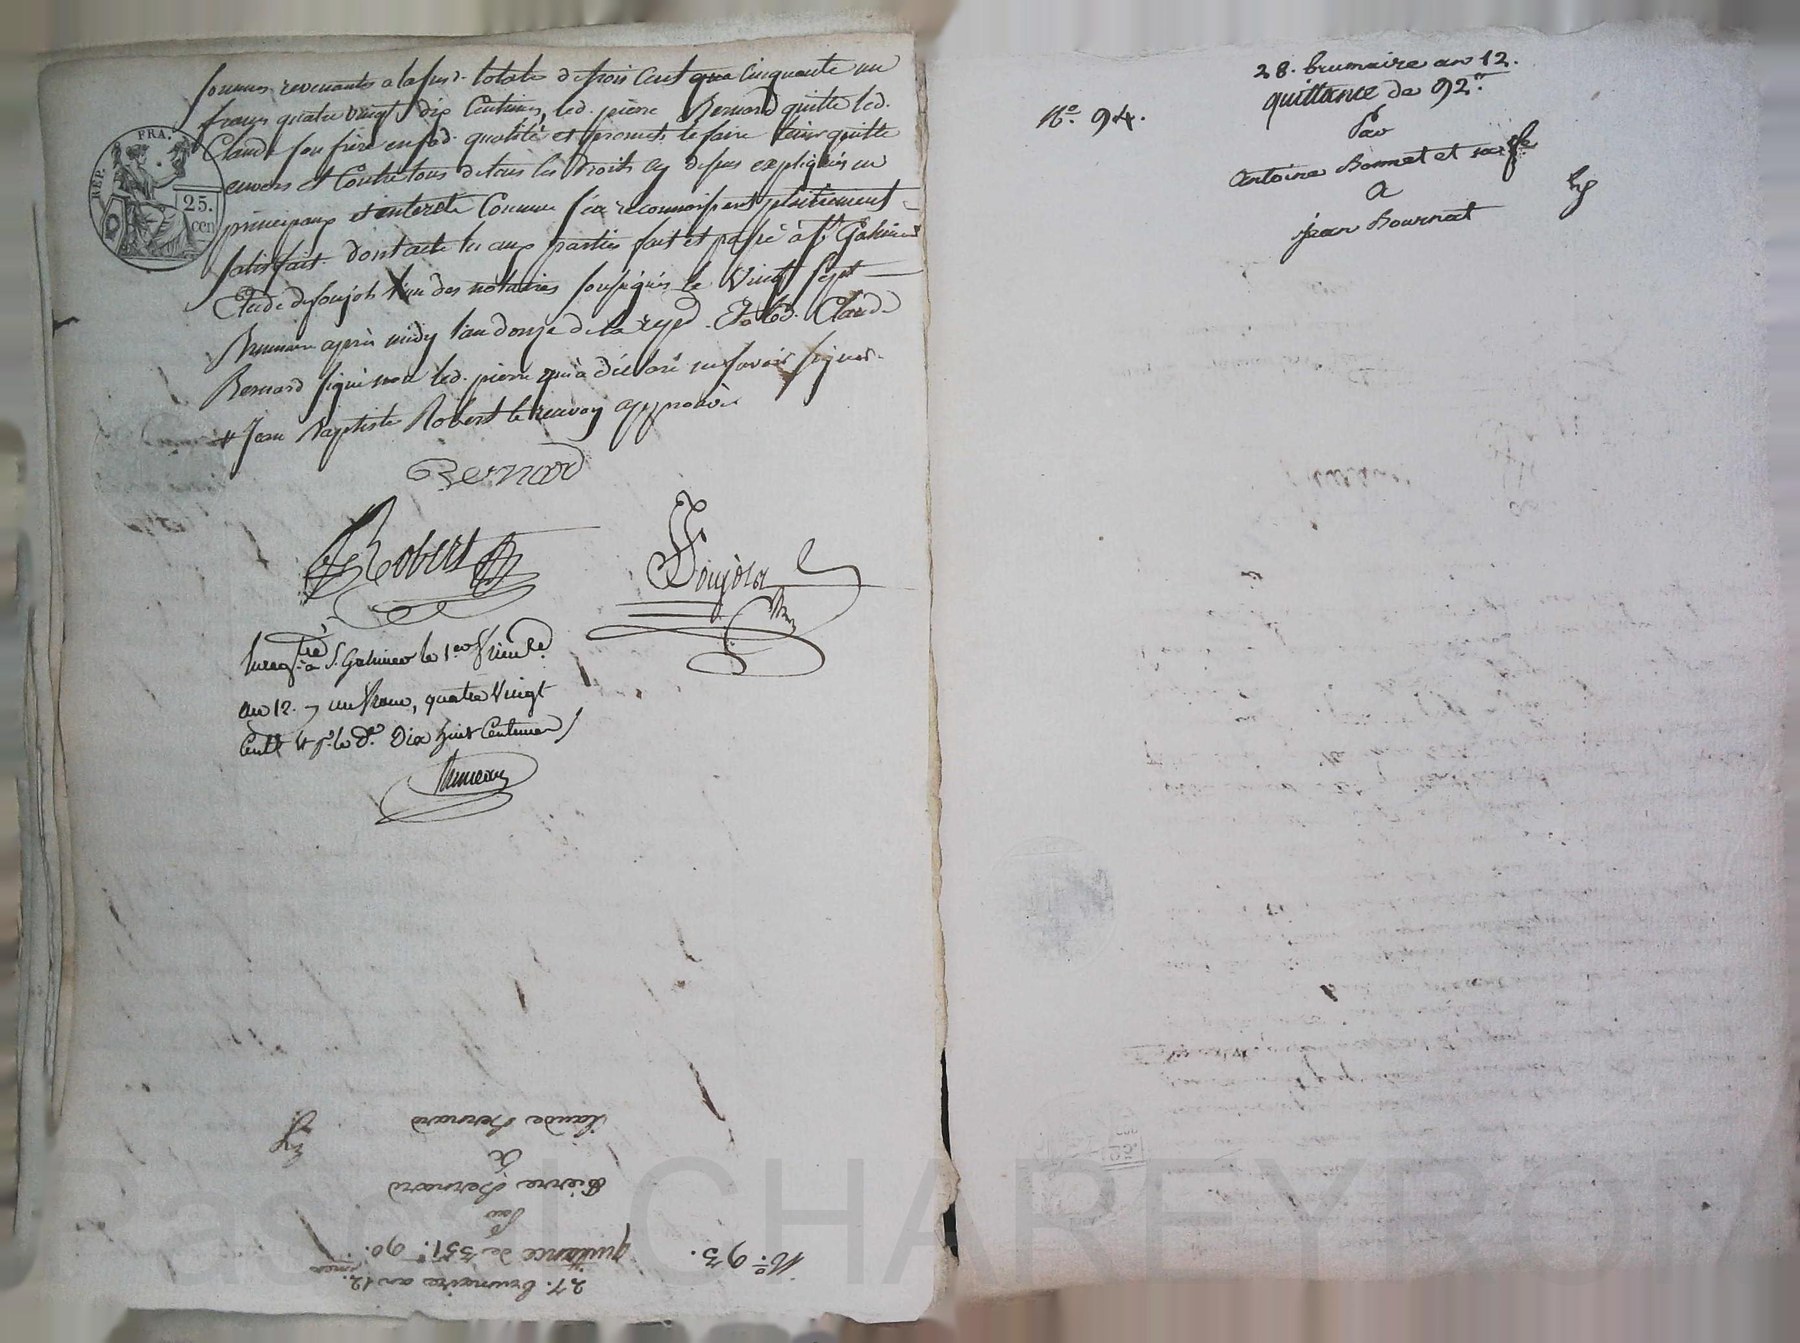 sommes revenants a la susd. totale de trois cent cinquante un
francs quatre vingt dix centimes, led. pierre Bernard quitte led.
Claude son frère en sad. qualité et promet le faire tenir quitte
envers et contre tous de tous les droits cy dessus expliqués en
principaux et interets comme s'en reconnoissant
satisfait. dont acte lu aux parties fait et passé à St. Galmier
Etude de Soujols l'un des notaires soussignés le Vingt Sept
Brumaire après midy l'an douze de la rep. Et led. Claude
Bernard signé non led. pierre qui a déclaré ne savoir signer.
Jean Baptiste Robert le renvoy approuvé
Bernard
Robert
Soujols
Enregtré à St. Galmier le 1er frimre
an 12. un franc, quatre Vingt
centes Dix huit Centimes
REP. FRA.
25.
cen
27. brumaire an 12.
quittance de 351.f 90.
Par
Pierre Bernard
A
Claude Bernard
No. 93.
28. brumaire an 12.
quittance de 92.f
Par
Antoine Bonnet et sa fe
A
jean Bournat
No. 94.
Pascal CHAREYRON